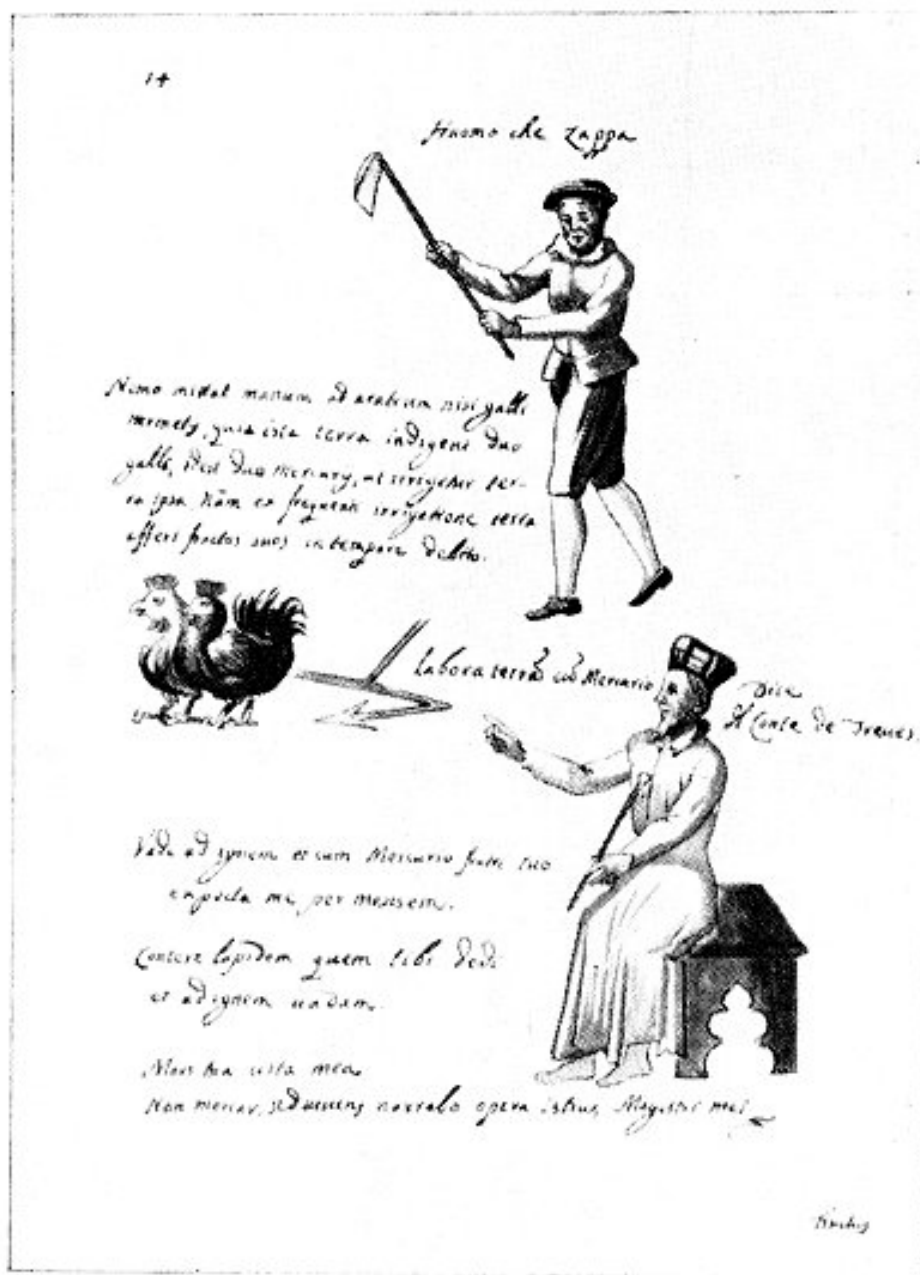 14
Huomo che zappa
Nemo mittat manum ad aratrum nisi galli
quia ista terra indigent duo
galli, duo mercurij, ut irrigetur ter-
ra ipsa, Nam ex frequenti irrigatione terra
affert fructus suos in tempore debito.
Labora terrã cũ Mercurio
Dice
il Conte de Treues.
Vado ad ignem et cum Mercurio fratre tuo
expecta me per mensem.
Contere lapidem quem tibi dedi
et ad ignem uadam.
Mors tua uita mea
Non moriar, sed uiuens narrabo opera istius Magistri mei